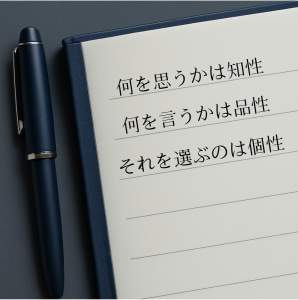 何を思うかは知性
何を言うかは品性
それを選ぶのは個性